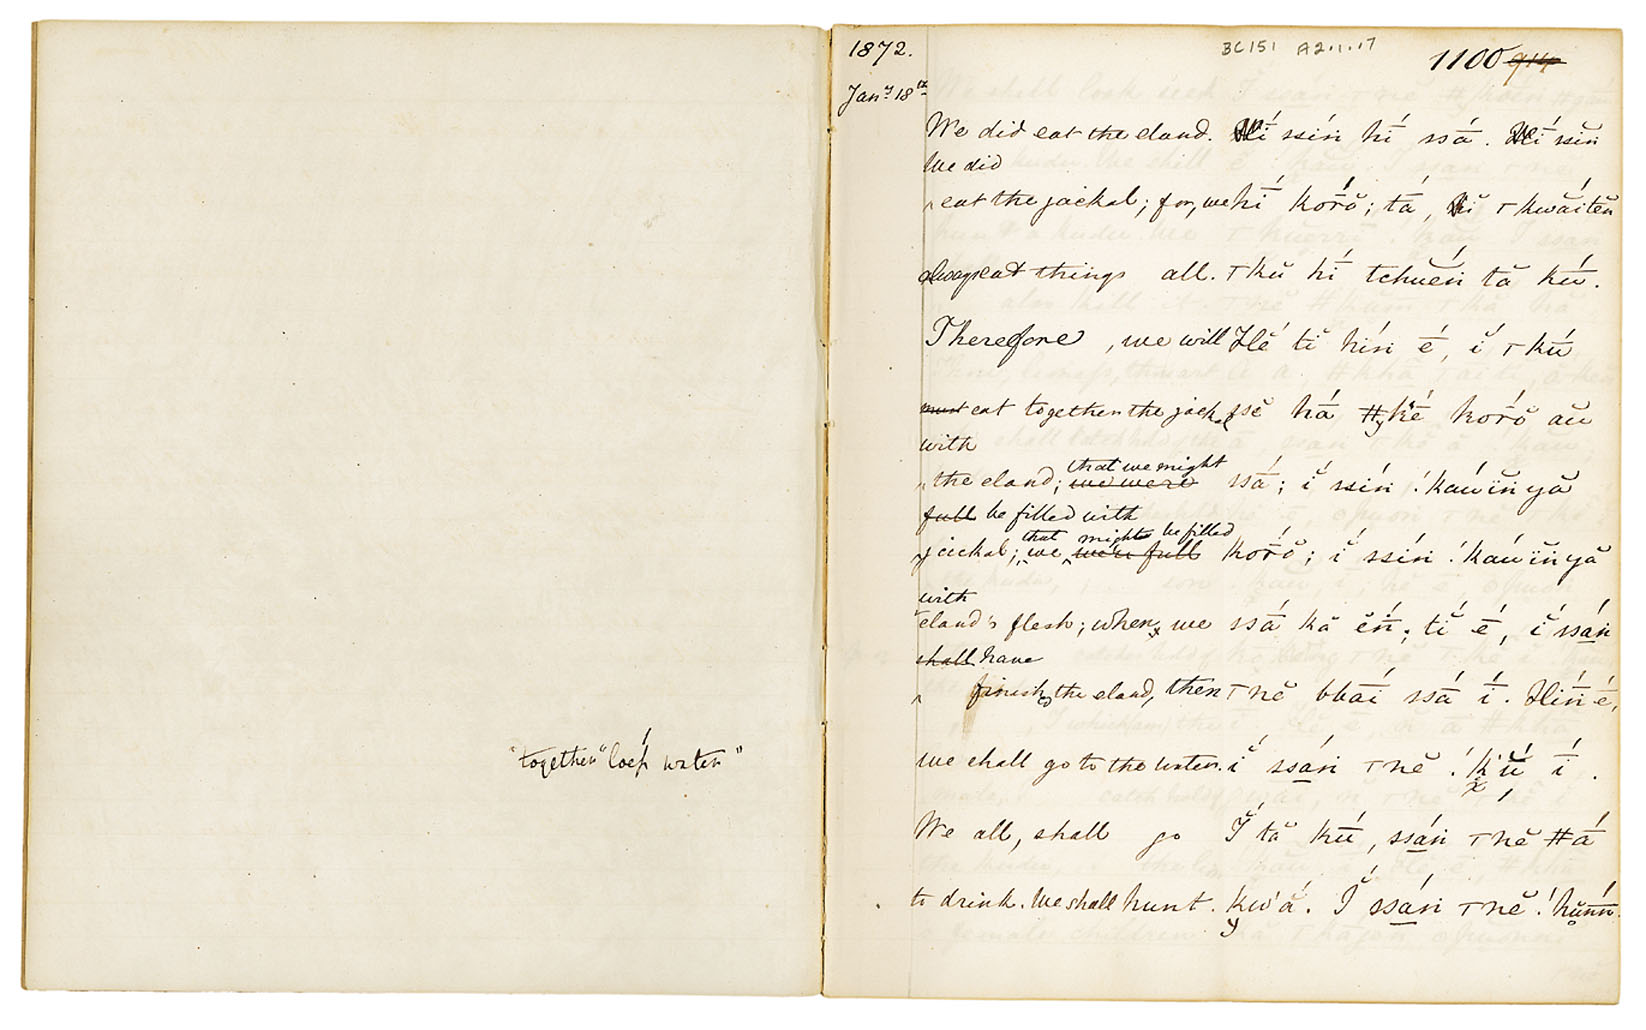 "together" loop water"
1872.
BC151 A2.1.17
1100 914
Jany 18th
We did eat the eland. Hĭ ssin hĭ ssā. Hĭ ssin
We did
eat the jackal; for, we hī korŏ; tā, hĭ ⊤kwăitĕn
always eat things all. ⊤kŭ hī tchuĕn tă kū.
Therefore, we will Hĕ tĭ hin ē, ĭ ⊤kŭ
must eat together the jackal ssĕ hā ǂkē korŏ aŭ
with
the eland; that we might we were ssā; ĭ ssin !kauïnyă
full be filled with
jackal; that we might be filled were full korŏ; ĭ ssin !kauïnyă
with
eland's flesh; when we ssā kă ĕn; tĭ ē, ĭ ssan
shall have
finished the eland, then ⊤nĕ bbāi ssā ī. Hin ē,
we shall go to the water. ĭ ssan ⊤nĕ !kŭ ī.
We all, shall go Ĭ tă kū, ssan ⊤nĕ ǂā
to drink. We shall hunt. kwă. Ĭ ssan ⊤nĕ !hŭnn.